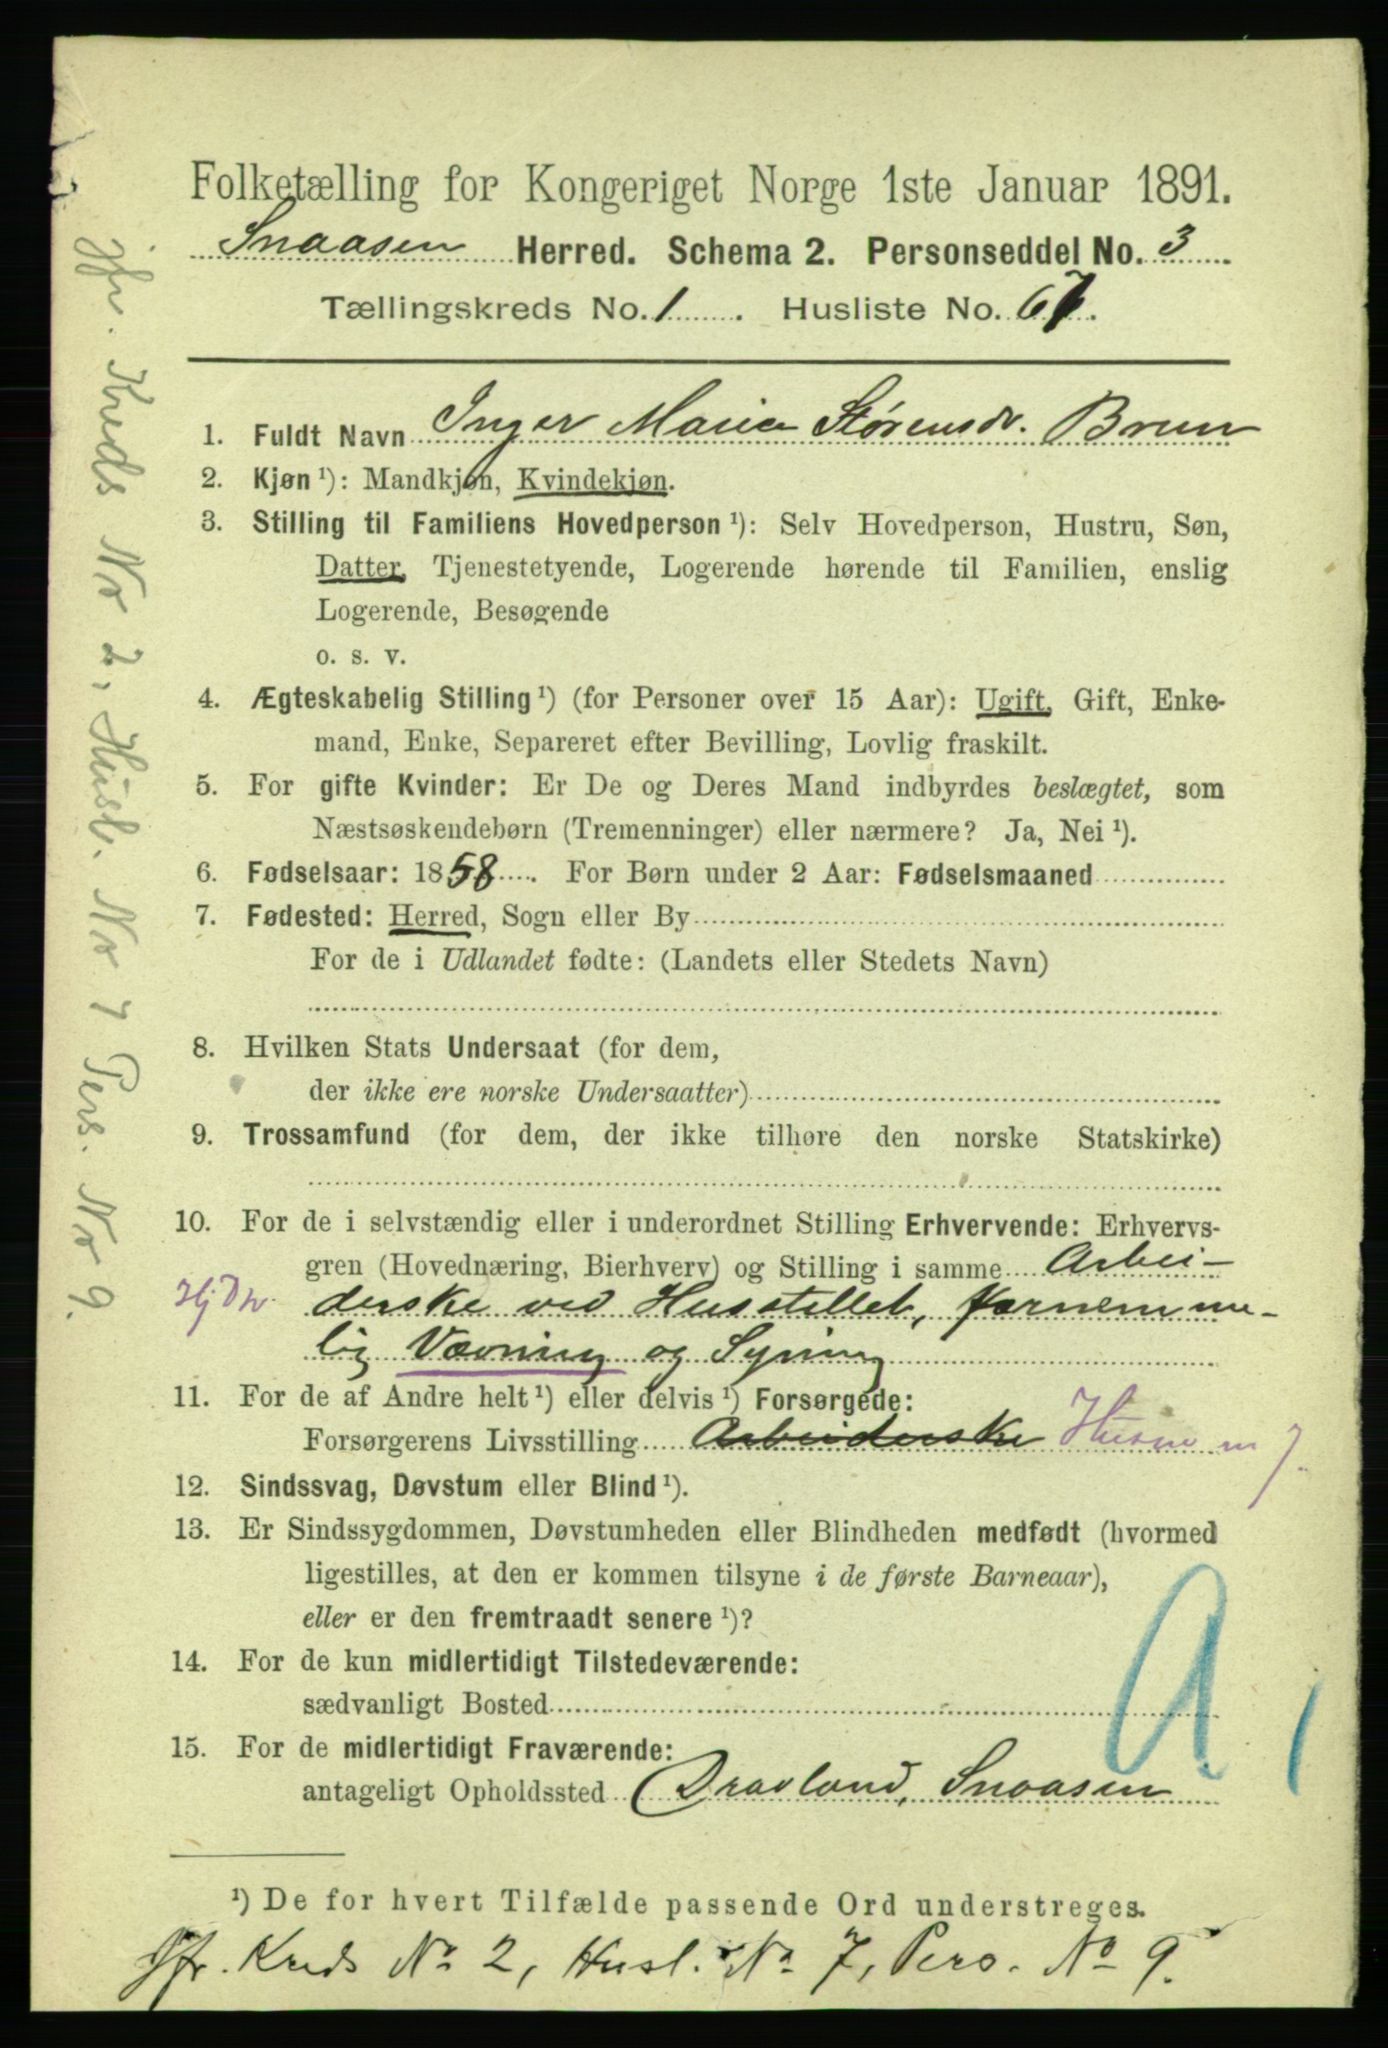 Folketælling for Kongeriget Norge 1ste Januar 1891.
Snaasen Herred. Schema 2. Personseddel No. 3
Tællingskreds No. 1. Husliste No. 67.
1. Fuldt Navn Inger Marie Størensdr. Brun
2. Kjøn ¹): Mandkjøn, Kvindekjøn.
3. Stilling til Familiens Hovedperson ¹): Selv Hovedperson, Hustru, Søn,
Datter, Tjenestetyende, Logerende hørende til Familien, enslig
Logerende, Besøgende
o. s. v.
4. Ægteskabelig Stilling ¹) (for Personer over 15 Aar): Ugift, Gift, Enke-
mand, Enke, Separeret efter Bevilling, Lovlig fraskilt.
5. For gifte Kvinder: Er De og Deres Mand indbyrdes beslægtet, som
Næstsøskendebørn (Tremenninger) eller nærmere? Ja, Nei ¹).
6. Fødselsaar: 1858. For Børn under 2 Aar: Fødselsmaaned
7. Fødested: Herred, Sogn eller By
For de i Udlandet fødte: (Landets eller Stedets Navn)
8. Hvilken Stats Undersaat (for dem,
der ikke ere norske Undersaatter)
9. Trossamfund (for dem, der ikke tilhøre den norske Statskirke)
10. For de i selvstændig eller i underordnet Stilling Erhvervende: Erhvervs-
gren (Hovednæring, Bierhverv) og Stilling i samme Arbei-
derske ved Husstellet, fornemme-
lig Vævning og Syning
11. For de af Andre helt ¹) eller delvis ¹) Forsørgede:
Forsørgerens Livsstilling Arbeiderske Husm m J.
12. Sindssvag, Døvstum eller Blind ¹).
13. Er Sindssygdommen, Døvstumheden eller Blindheden medfødt (hvormed
ligestilles, at den er kommen tilsyne i de første Barneaar),
eller er den fremtraadt senere ¹)?
14. For de kun midlertidigt Tilstedeværende:
sædvanligt Bosted
15. For de midlertidigt Fraværende:
antageligt Opholdssted Dravland, Snaasen
¹) De for hvert Tilfælde passende Ord understreges.
Jfr. Kreds No 2, Husl. No 7, Pers. No 9.
jfr. Kreds No 2, Husl. No 7 Pers. No 9.
A